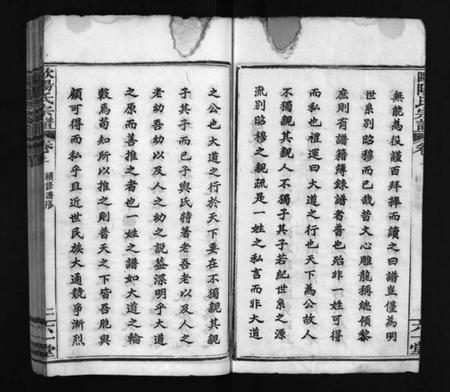 無能為役謹百拜捧而讀之曰譜豈僅為明
世系別昭穆而已哉昔文心雕龍稱總領黎
庶則有譜籍簿錄譜者普也殆非一姓可得
而私也禮運曰大道之行也天下為公故人
不獨親其親人不獨子其子若紀世系之源
流別昭穆之親疏是一姓之私言而非大道
之公也大道之行於天下要在不獨親其親
子其子而已子輿氏特著老吾老以及人之
老幼吾幼以及人之幼之說蓋深明乎大道
之原而善推之者也一姓之譜如大道之輪
轂焉苟知所以推之則普天之下皆吾胞與
顧可得而私乎且近世民族大通競爭漸烈
歐陽氏宗譜
卷
續語譜序
二
六一堂
歐陽氏宗譜
卷
六一堂